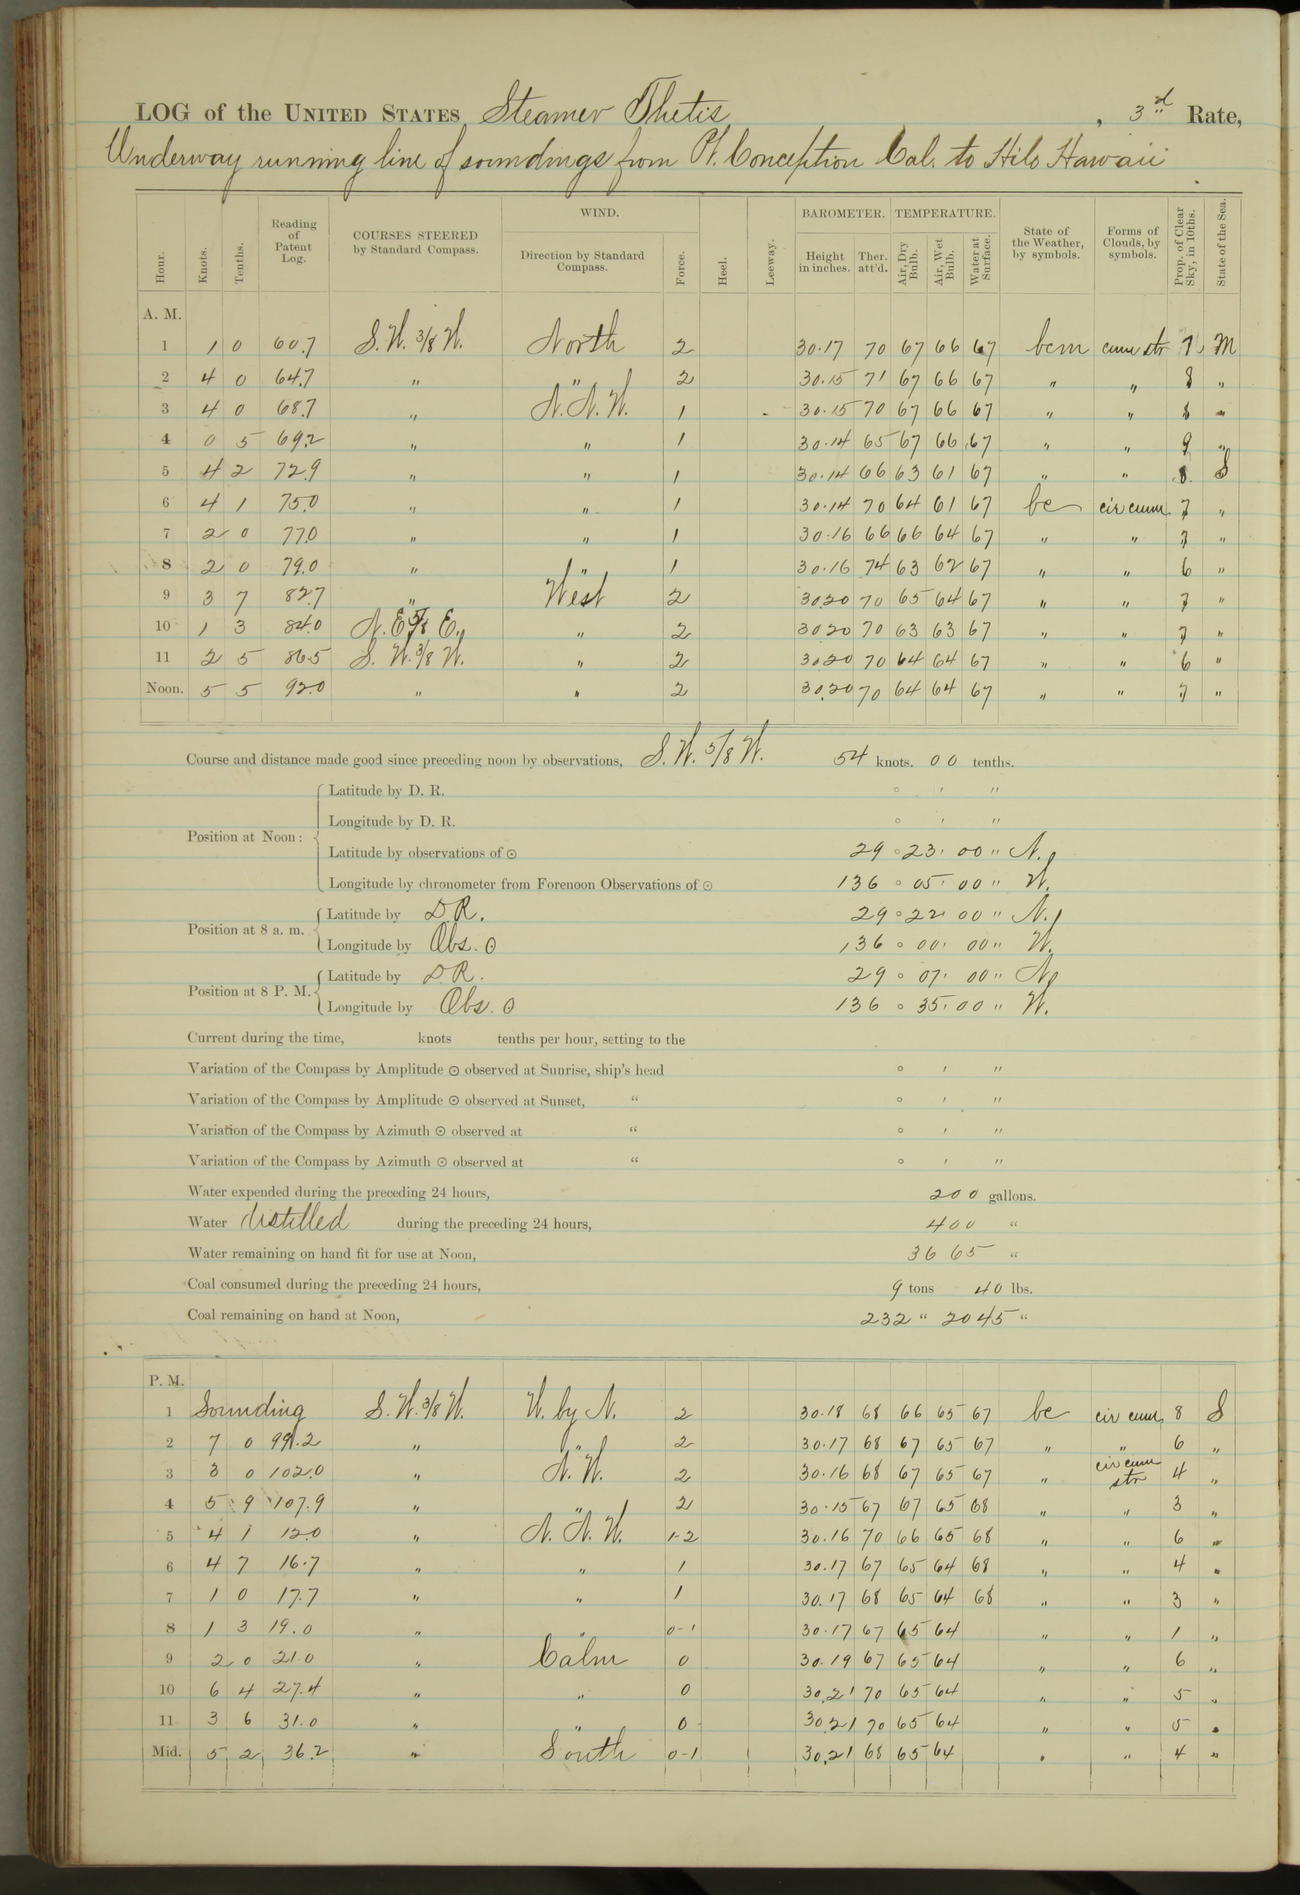 LOG of the UNITED STATES Steamer Thetis, 3d Rate,
Underway running line of soundings from Pt. Conception Cal. to Hilo Hawaii
Hour. Knots. Tenths. Reading of Patent Log. COURSES STEERED by Standard Compass. WIND. Direction by Standard Compass. Force. Heel. Leeway. BAROMETER. Height in inches. Ther. att'd. TEMPERATURE. Air, Dry Bulb. Air, Wet Bulb. Water at Surface. State of the Weather, by symbols. Forms of Clouds, by symbols. Prop. of Clear Sky, in 10ths. State of the Sea.
A. M.
1 1 0 60.7 S.W. 3/8 W. North 2 30.17 70 67 66 67 bcm cum str 7 M
2 4 0 64.7 " " 2 30.15 71 67 66 67 " " 8 "
3 4 0 68.7 " N.N.W. 1 30.15 70 67 66 67 " " 8 "
4 0 5 69.2 " " 1 30.14 65 67 66 67 " " 9 "
5 4 2 72.9 " " 1 30.14 66 63 61 67 " " 8 S
6 4 1 75.0 " " 1 30.14 70 64 61 67 bc cir cum 7 "
7 2 0 77.0 " " 1 30.16 66 66 64 67 " " 7 "
8 2 0 79.0 " " 1 30.16 74 63 62 67 " " 6 "
9 3 7 82.7 " West 2 30.20 70 65 64 67 " " 7 "
10 1 3 84.0 N.E. 5/8 E. " 2 30.20 70 63 63 67 " " 7 "
11 2 5 86.5 S.W. 3/8 W. " 2 30.20 70 64 64 67 " " 6 "
Noon. 5 5 92.0 " " 2 30.20 70 64 64 67 " " 7 "
Course and distance made good since preceding noon by observations, S.W. 5/8 W. 54 knots. 00 tenths.
Position at Noon:
Latitude by D. R. ° ' "
Longitude by D. R. ° ' "
Latitude by observations of ⊙ 29 ° 23 ' 00 " N.
Longitude by chronometer from Forenoon Observations of ⊙ 136 ° 05 ' 00 " W.
Position at 8 a. m.
Latitude by D.R. 29 ° 22 ' 00 " N.
Longitude by Obs. ⊙ 136 ° 00 ' 00 " W.
Position at 8 P. M.
Latitude by D.R. 29 ° 07 ' 00 " N.
Longitude by Obs. ⊙ 136 ° 35 ' 00 " W.
Current during the time, knots tenths per hour, setting to the
Variation of the Compass by Amplitude ⊙ observed at Sunrise, ship's head ° ' "
Variation of the Compass by Amplitude ⊙ observed at Sunset, " ° ' "
Variation of the Compass by Azimuth ⊙ observed at " ° ' "
Variation of the Compass by Azimuth ⊙ observed at " ° ' "
Water expended during the preceding 24 hours, 200 gallons.
Water distilled during the preceding 24 hours, 400 "
Water remaining on hand fit for use at Noon, 3665 "
Coal consumed during the preceding 24 hours, 9 tons 40 lbs.
Coal remaining on hand at Noon, 232 " 2045 "
P. M.
1 Sounding S.W. 3/8 W. W. by N. 2 30.18 68 66 65 67 bc cir cum 8 S
2 7 0 99.2 " " 2 30.17 68 67 65 67 " " 6 "
3 3 0 102.0 " N.W. 2 30.16 68 67 65 67 " cir cum str 4 "
4 5 9 107.9 " " 2 30.15 67 67 65 68 " " 3 "
5 4 1 12.0 " N.N.W. 1-2 30.16 70 66 65 68 " " 6 "
6 4 7 16.7 " " 1 30.17 67 65 64 68 " " 4 "
7 1 0 17.7 " " 1 30.17 68 65 64 68 " " 3 "
8 1 3 19.0 " " 0-1 30.17 67 65 64 " " 1 "
9 2 0 21.0 " Calm 0 30.19 67 65 64 " " 6 "
10 6 4 27.4 " " 0 30.21 70 65 64 " " 5 "
11 3 6 31.0 " " 0 30.21 70 65 64 " " 5 "
Mid. 5 2 36.2 " South 0-1 30.21 68 65 64 " " 4 "